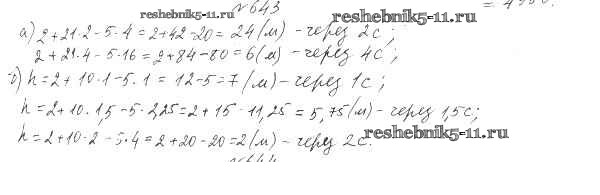 №643
= 4950.
reshebnik5-11.ru
reshebnik5-11.ru
а) 2+21·2-5·4=2+42-20=24(м) -через 2с;
2+21·4-5·16=2+84-80=6(м)-через 4с;
б) h=2+10·1-5·1=12-5=7(м)-через 1с
h=2+10·1,5-5·2,25=2+15-11,25=5,75(м)-через 1,5с;
h=2+10·2-5·4=2+20-20=2(м)-через 2с.
reshebnik5-11.ru
№644